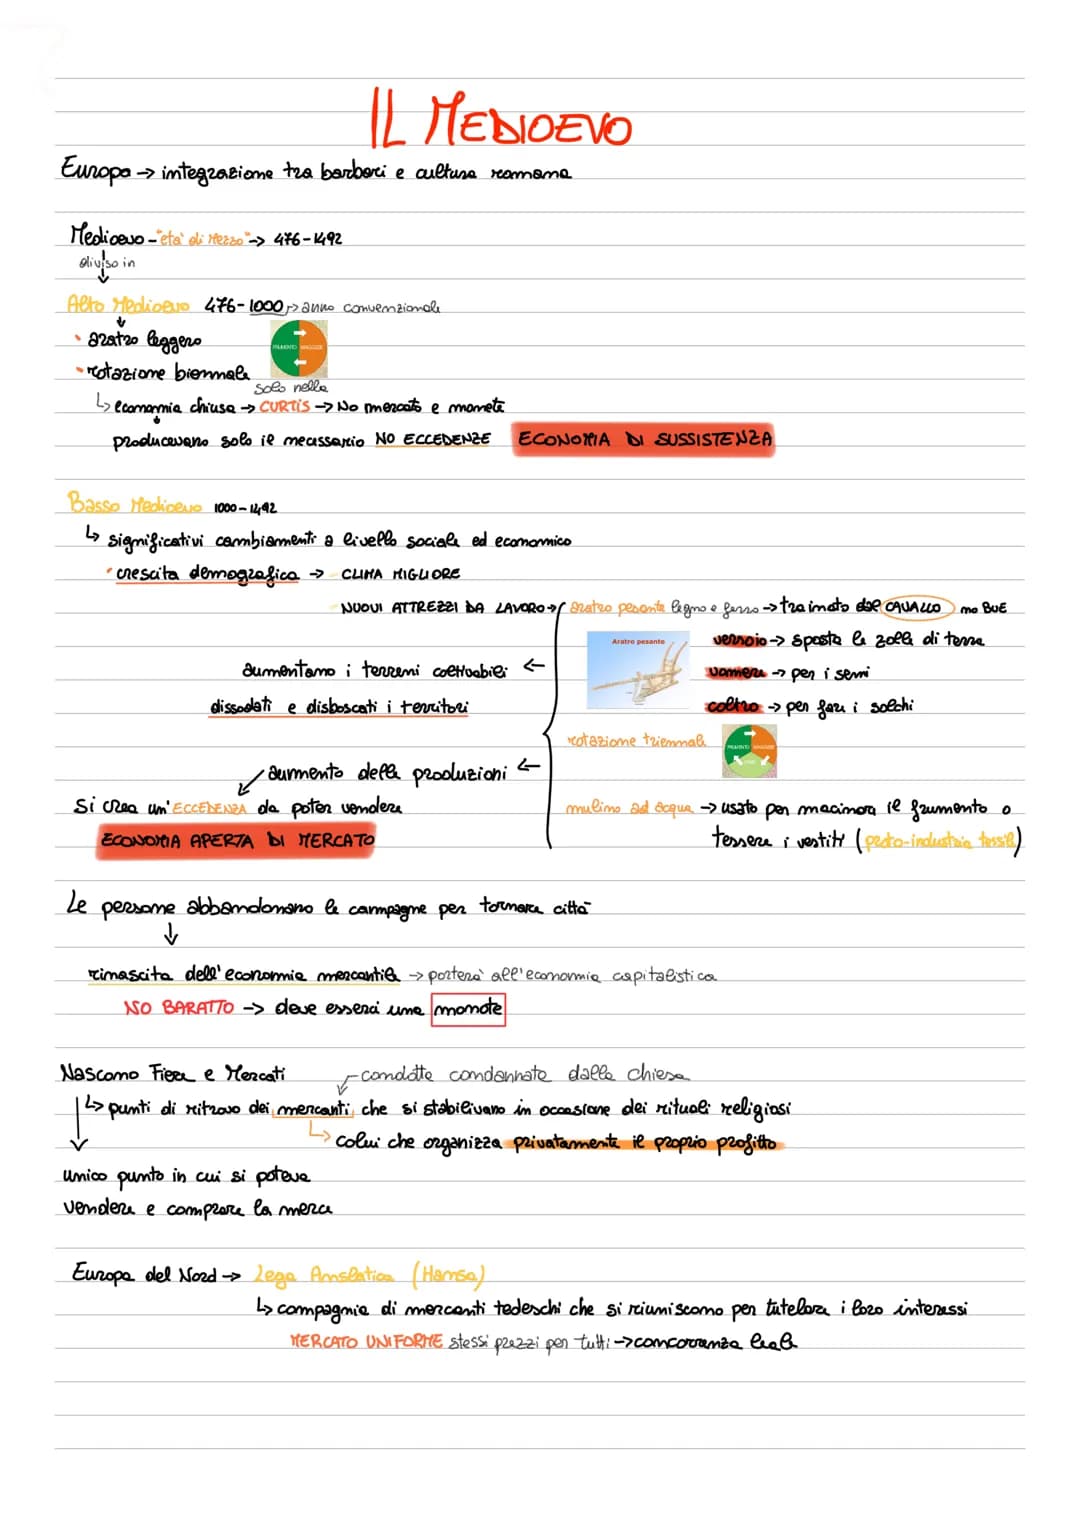 IL MEDIOEVO
Europa → integrazione tra barbari e cultura romana
Medioevo - "età di Mezzo" → 476-1492
diviso in
Alto Medioevo 476-1000 → anno convenzionale
• aratro leggero
FRUMENTO MAGGESE
• rotazione biennale
solo nella
↳ economia chiusa → CURTIS → No mercato e monete
producevano solo il necessario NO ECCEDENZE ECONOMIA DI SUSSISTENZA
Basso Medioevo 1000-1492
↳ significativi cambiamenti a livello sociale ed economico
• crescita demografica → - CLIMA MIGLIORE
- NUOVI ATTREZZI DA LAVORO → aratro pesante legno e ferro → trainato dal CAVALLO no BUE
Aratro pesante
versoio → sposta le zolle di terra
aumentano i terreni coltivabili ←
vomere → per i semi
dissodati e disboscati i territori
coltro → per fare i solchi
rotazione triennale
FRUMENTO MAGGESE
aumento della produzioni ←
Si crea un'ECCEDENZA da poter vendere
mulino ad acqua → usato per macinare il frumento o
ECONOMIA APERTA DI MERCATO
tessere i vestiti (proto-industria tessile)
Le persone abbandonano le campagne per tornare città
rinascita dell'economia mercantile → porterà all'economia capitalistica
NO BARATTO → deve esserci una monete
Nascono Fiere e Mercati
condotte condannate dalla chiesa
↳ punti di ritrovo dei mercanti, che si stabilivano in occasione dei rituali religiosi
↳ colui che organizza privatamente il proprio profitto
unico punto in cui si poteva
vendere e comprare la merce
Europa del Nord → Lega Anseatica (Hansa)
↳ compagnie di mercanti tedeschi che si riuniscono per tutelare i loro interessi
MERCATO UNIFORME stessi prezzi per tutti → concorrenza leale